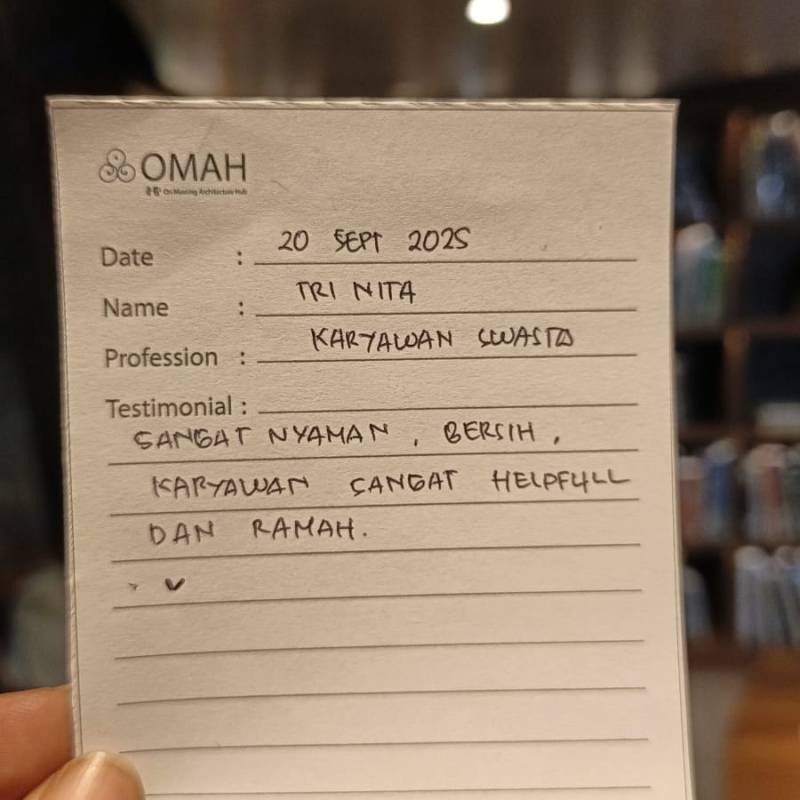 OMAH
On Meeting Architecture Hub
Date : 20 SEPT 2025
Name : TRI NITA
Profession : KARYAWAN SWASTA
Testimonial :
SANGAT NYAMAN , BERSIH ,
KARYAWAN SANGAT HELPFULL
DAN RAMAH.